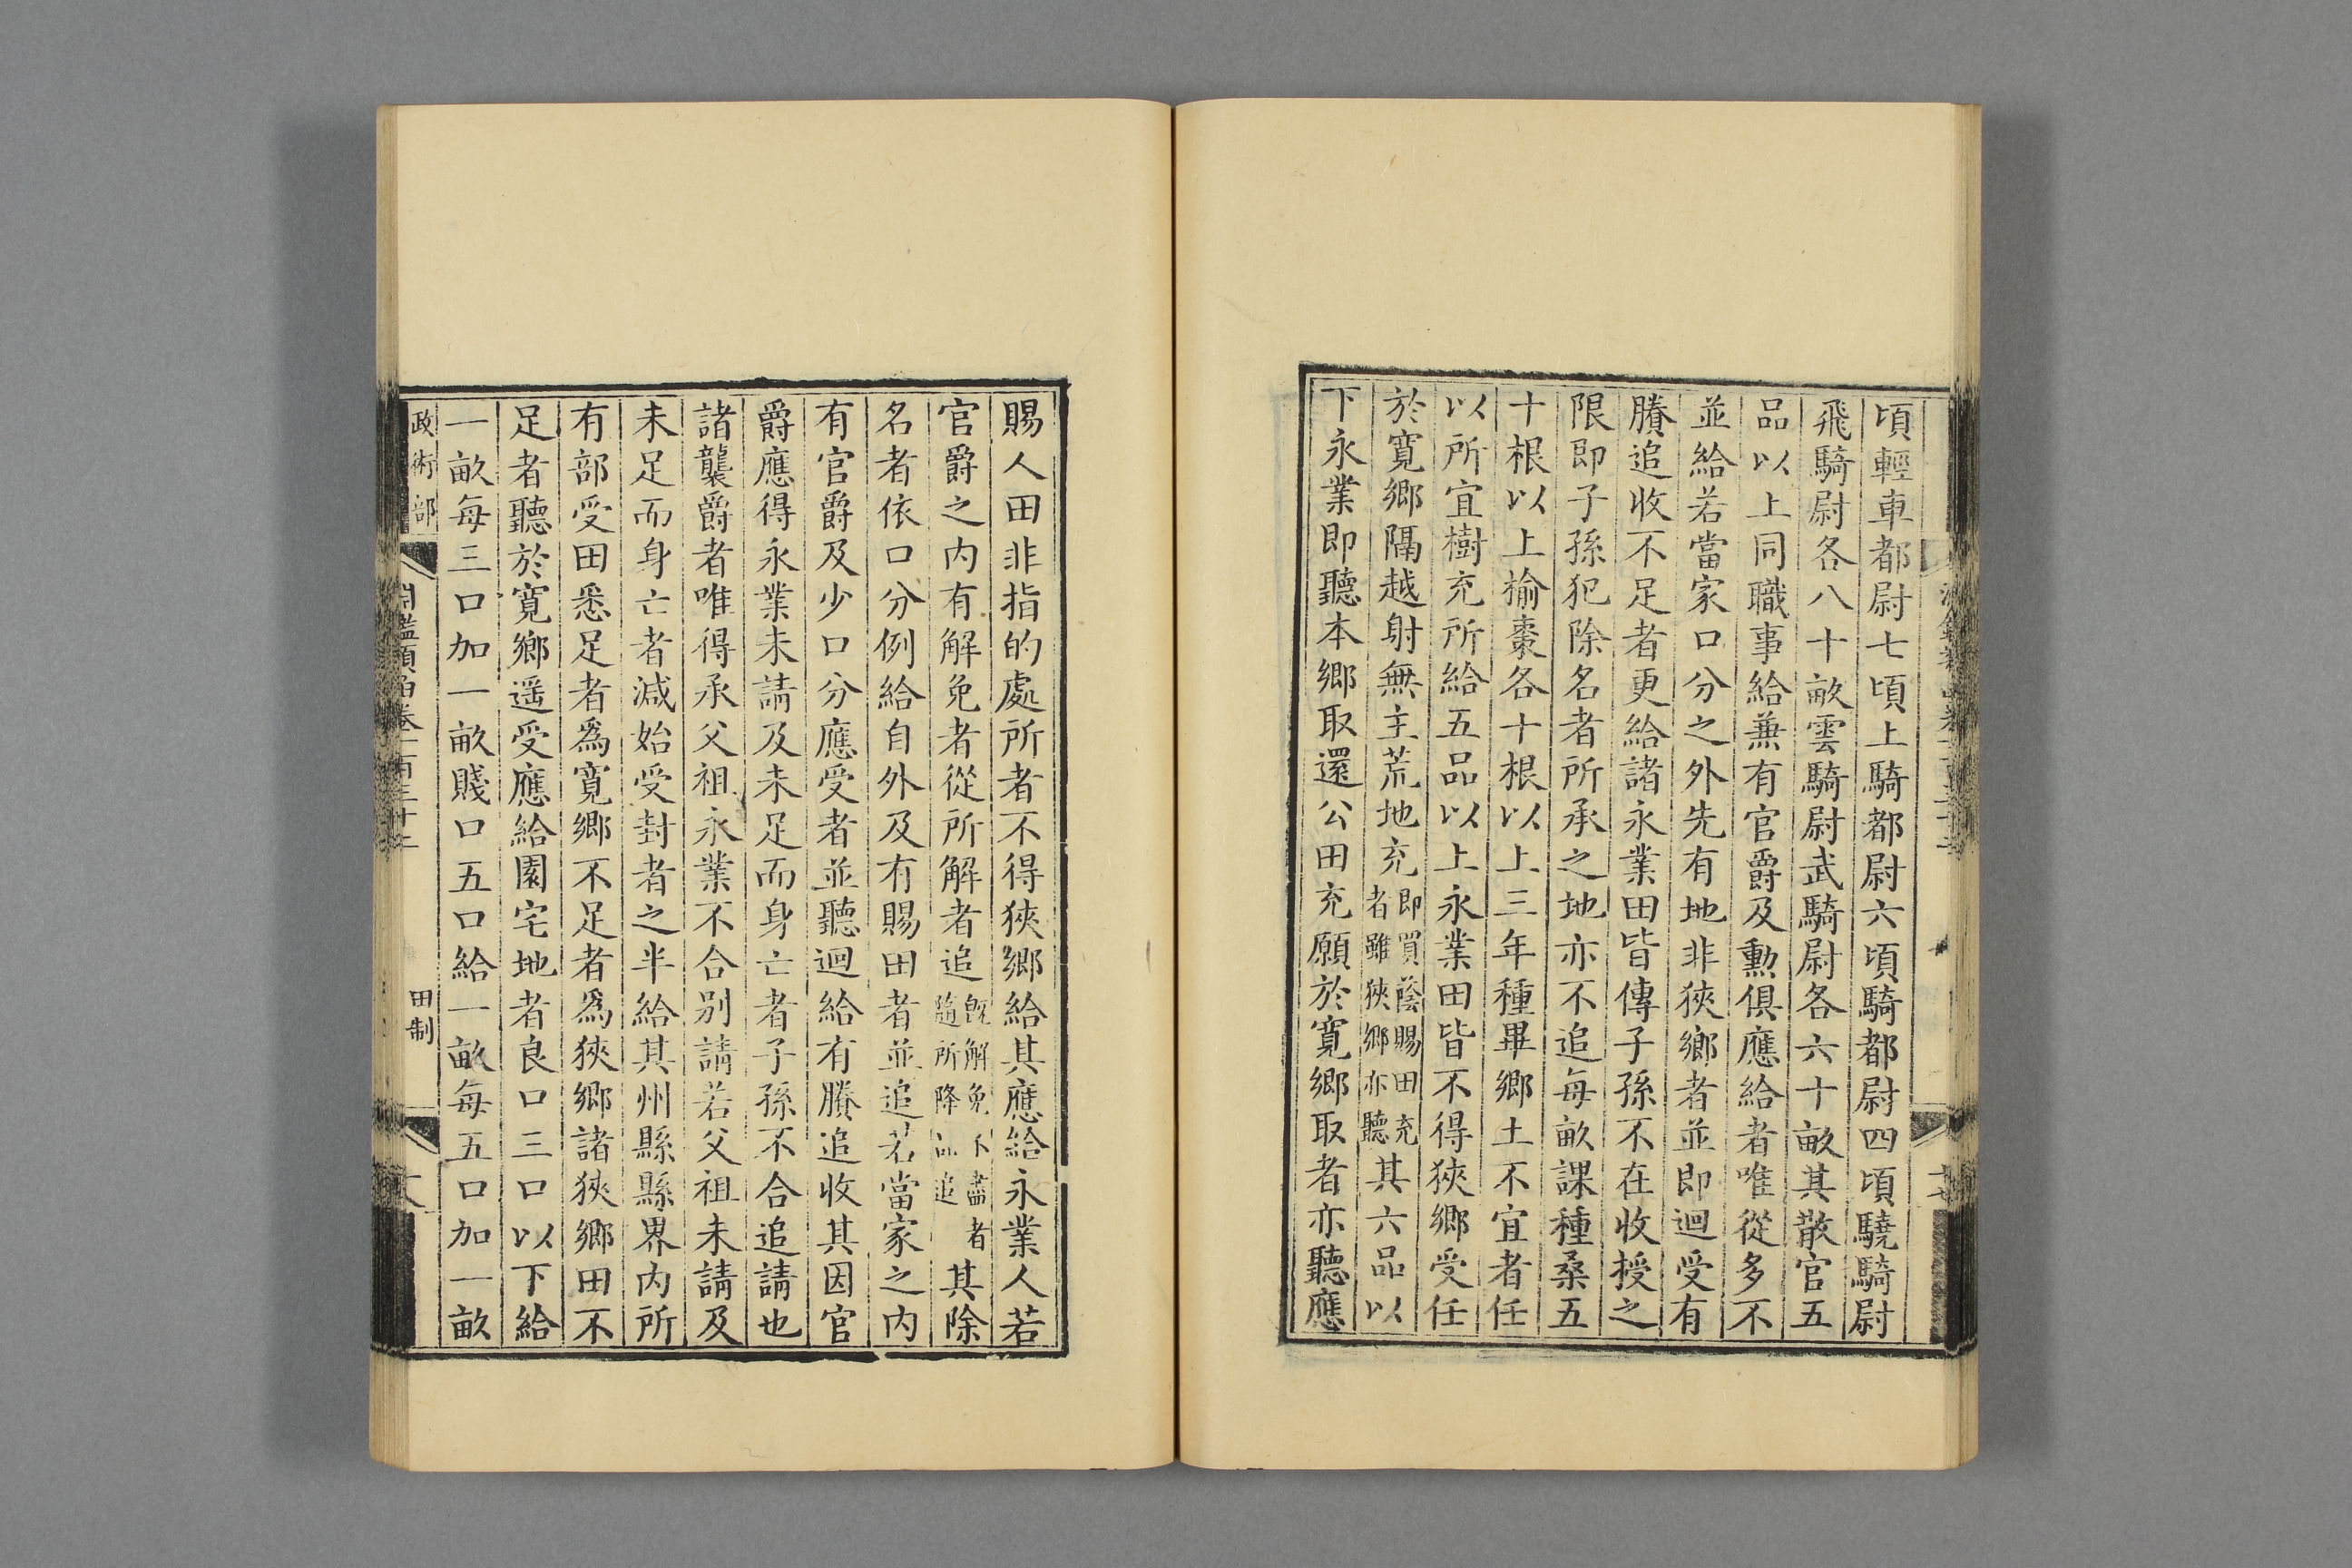 頃輕車都尉七頃上騎都尉六頃騎都尉四頃驍騎尉
飛騎尉各八十畝雲騎尉武騎尉各六十畝其散官五
品以上同職事給兼有官爵及勳俱應給者唯從多不
並給若當家口分之外先有地非狹鄉者並即迴受有
賸追收不足者更給諸永業田皆傳子孫不在收授之
限即子孫犯除名者所承之地亦不追每畝課種桑五
十根以上榆棗各十根以上三年種畢鄉土不宜者任
以所宜樹充所給五品以上永業田皆不得狹鄉受任
於寬鄉隔越射無主荒地充即買蔭賜田充者雖狹鄉亦聽其六品以
下永業即聽本鄉取還公田充願於寬鄉取者亦聽應
賜人田非指的處所者不得狹鄉給其應給永業人若
官爵之內有解免者從所解者追既解免不盡者隨所降品追其除
名者依口分例給自外及有賜田者並追若當家之內
有官爵及少口分應受者並聽迴給有賸追收其因官
爵應得永業未請及未足而身亡者子孫不合追請也
諸襲爵者唯得承父祖永業不合別請若父祖未請及
未足而身亡者減始受封者之半給其州縣縣界內所
有部受田悉足者爲寬鄉不足者爲狹鄉諸狹鄉田不
足者聽於寬鄉遥受應給園宅地者良口三口以下給
一畝每三口加一畝賤口五口給一畝每五口加一畝
政術部
淵鑑類函卷一百三十二
田制